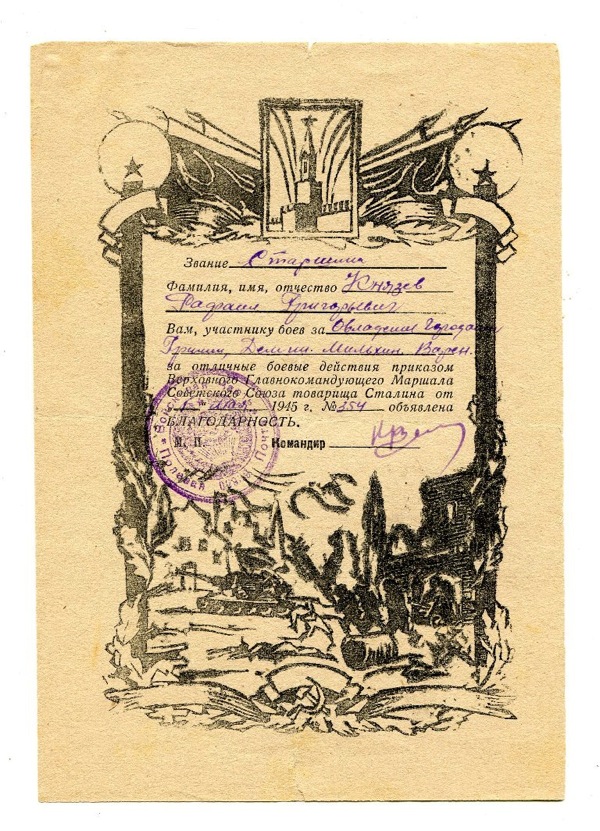 Звание Старшина
Фамилия, имя, отчество Князев
Рафаил Григорьевич
Вам, участнику боев за Овладение городами
Гримм, Демин. Мальхин. Варен.
за отличные боевые действия приказом
Верховного Главнокомандующего Маршала
Советского Союза товарища Сталина от
1945 г. № 354 объявлена
БЛАГОДАРНОСТЬ.
М. П. Командир
Полевая Почта